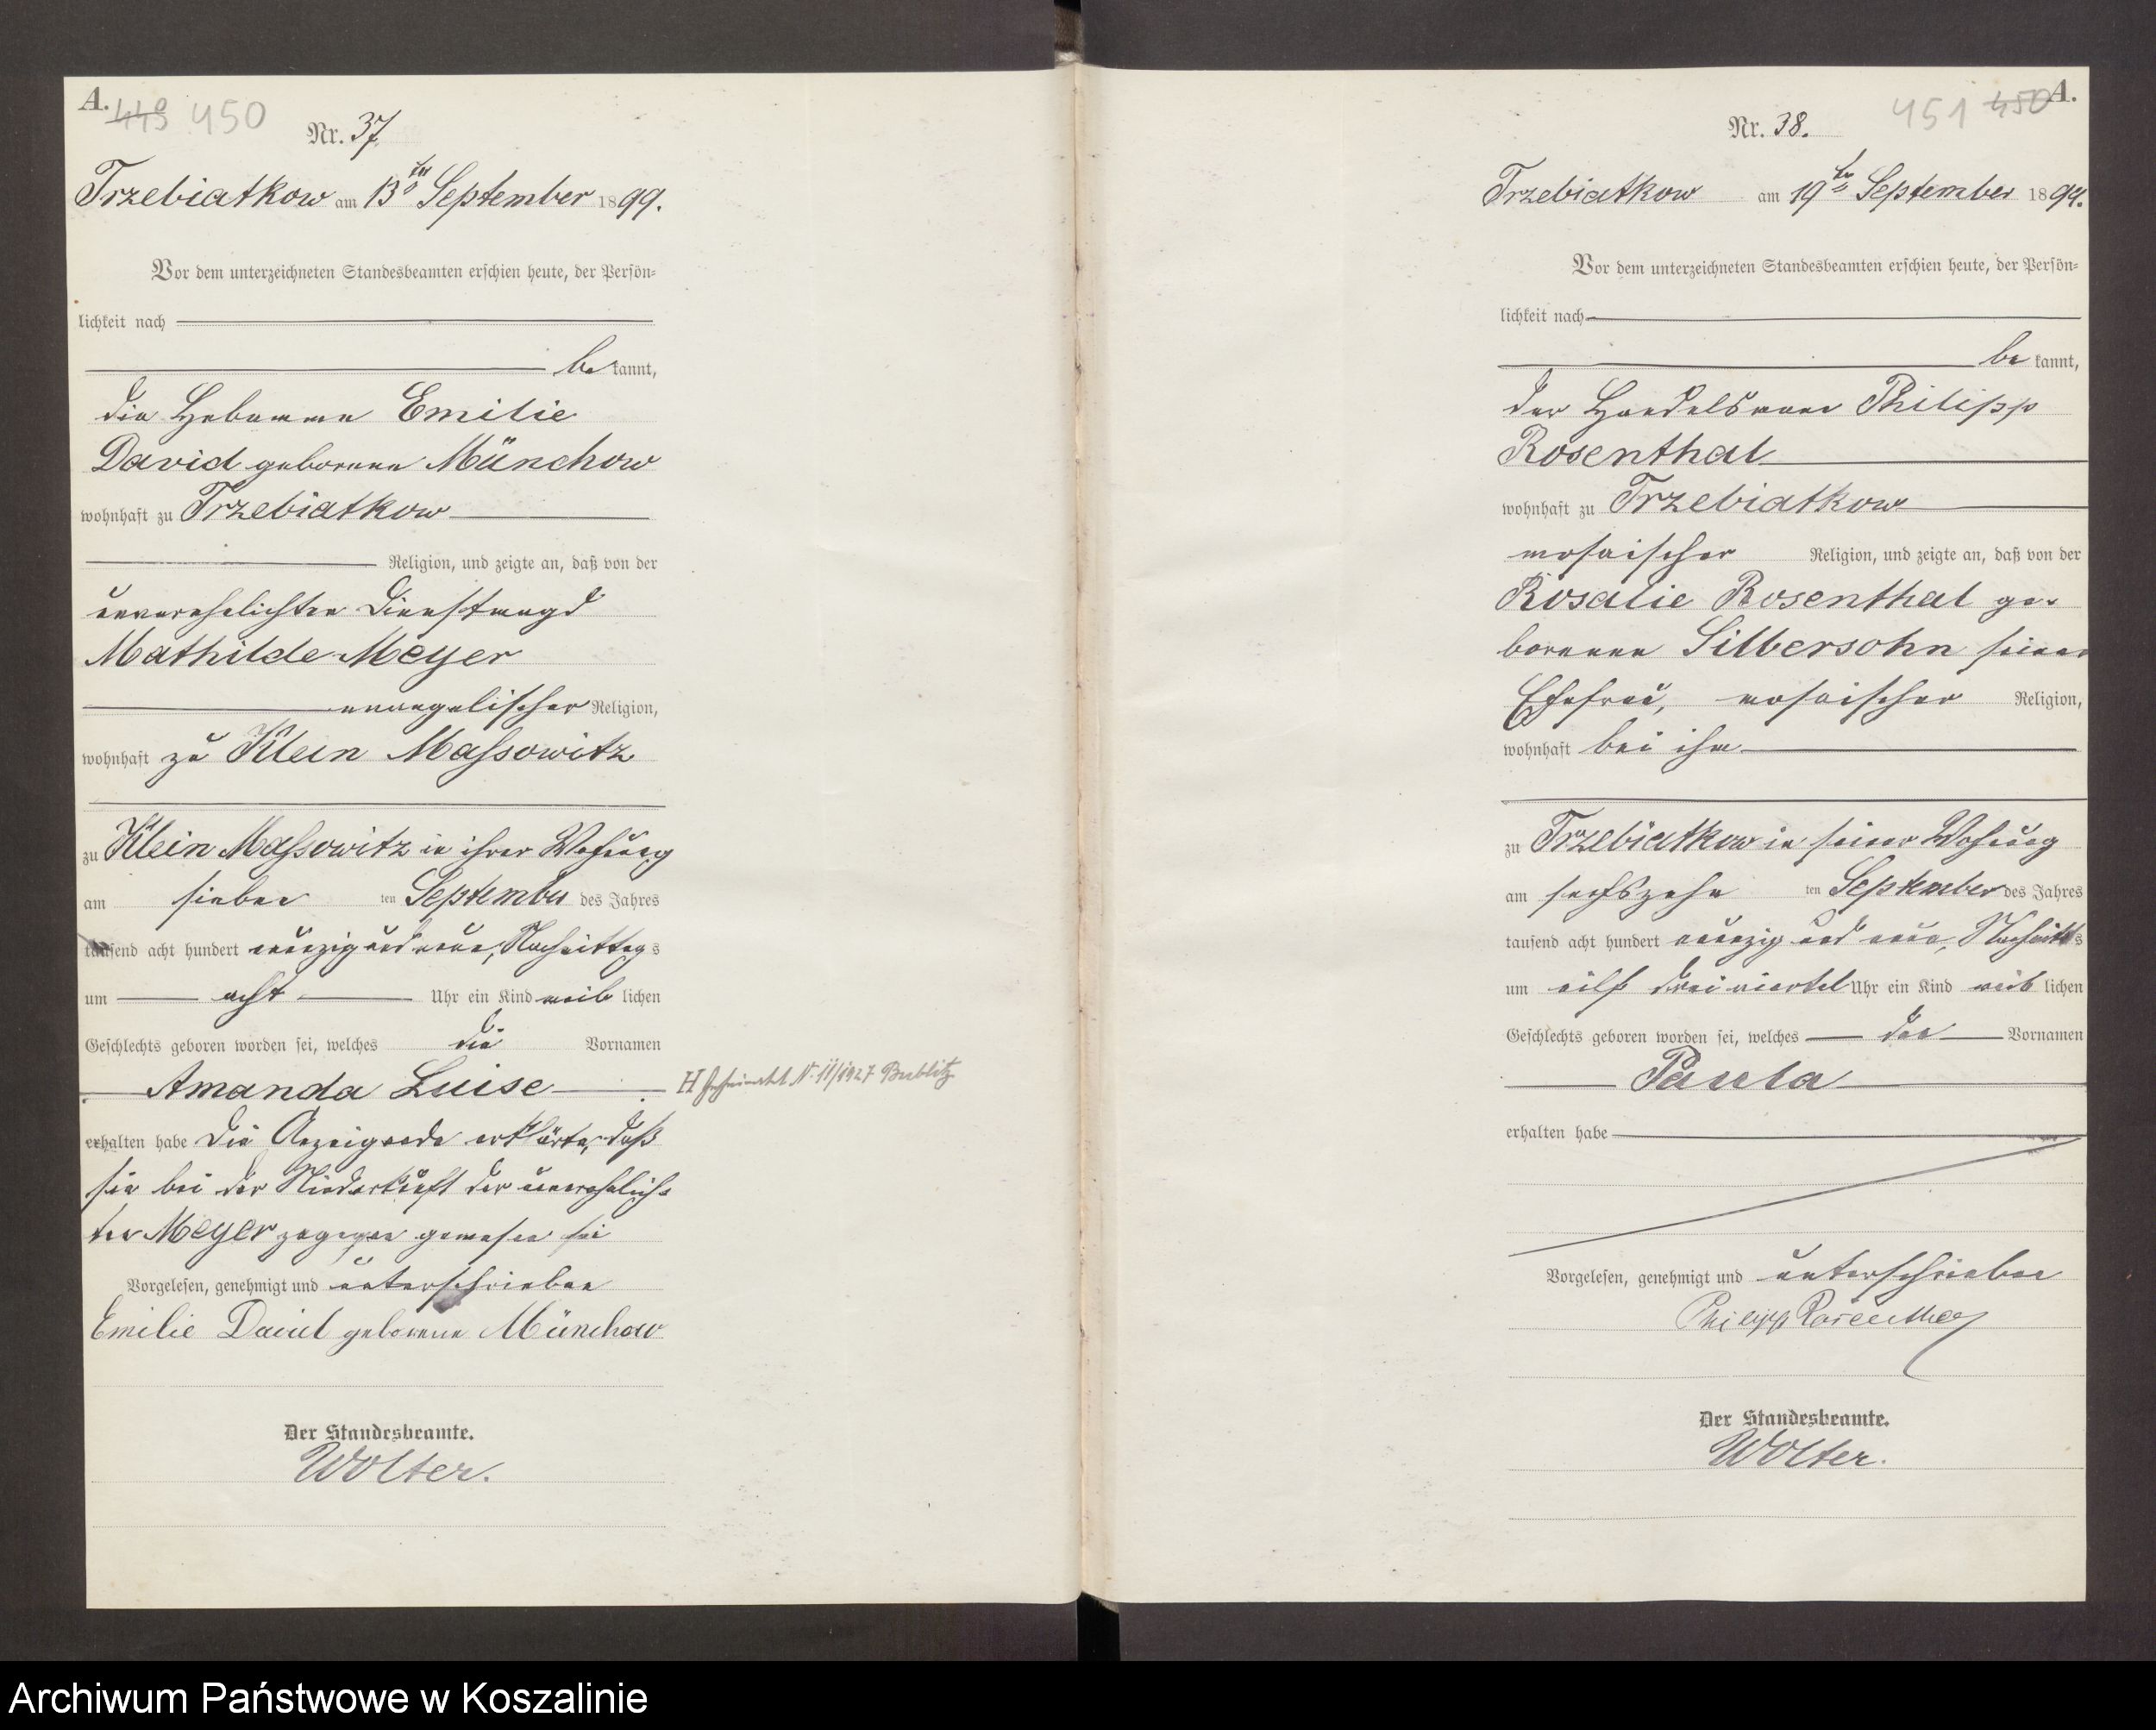 A.
449 450
Nr. 37.
Trzebiatkow am 13ten September 1899.
Vor dem unterzeichneten Standesbeamten erschien heute, der Persön=
lichkeit nach
be kannt,
die Hebamme Emilie
David geborene Münchow
wohnhaft zu Trzebiatkow
Religion, und zeigte an, daß von der
unverehelichten Dienstmagd
Mathilde Meyer
evangelischer Religion,
wohnhaft zu Klein Massowitz
zu Klein Massowitz in ihrer Wohnung
am sieben ten September des Jahres
tausend acht hundert neunzig und neun, Nachmittag s
um acht Uhr ein Kind weib lichen
Geschlechts geboren worden sei, welches die Vornamen
Amanda Luise
H Nr. 11/1927 Bublitz
erhalten habe Die Anzeigende erklärte, daß
sie bei der Niederkunft der unverehelich=
ten Meyer zugegen gewesen sei
Vorgelesen, genehmigt und unterschrieben
Emilie David geborene Münchow
Der Standesbeamte.
Wolter.
451 450 A.
Nr. 38.
Trzebiatkow am 19ten September 1899.
Vor dem unterzeichneten Standesbeamten erschien heute, der Persön=
lichkeit nach
be kannt,
der Handelsmann Philipp
Rosenthal
wohnhaft zu Trzebiatkow
mosaischer Religion, und zeigte an, daß von der
Rosalie Rosenthal ge=
borenen Silbersohn seiner
Ehefrau, mosaischer Religion,
wohnhaft bei ihm
zu Trzebiatkow in seiner Wohnung
am sechszehn ten September des Jahres
tausend acht hundert neunzig und neun, Nachmitt s
um eilf dreiviertel Uhr ein Kind weib lichen
Geschlechts geboren worden sei, welches den Vornamen
Paula
erhalten habe
Vorgelesen, genehmigt und unterschrieben
Philipp Rosenthal
Der Standesbeamte.
Wolter.
Archiwum Państwowe w Koszalinie